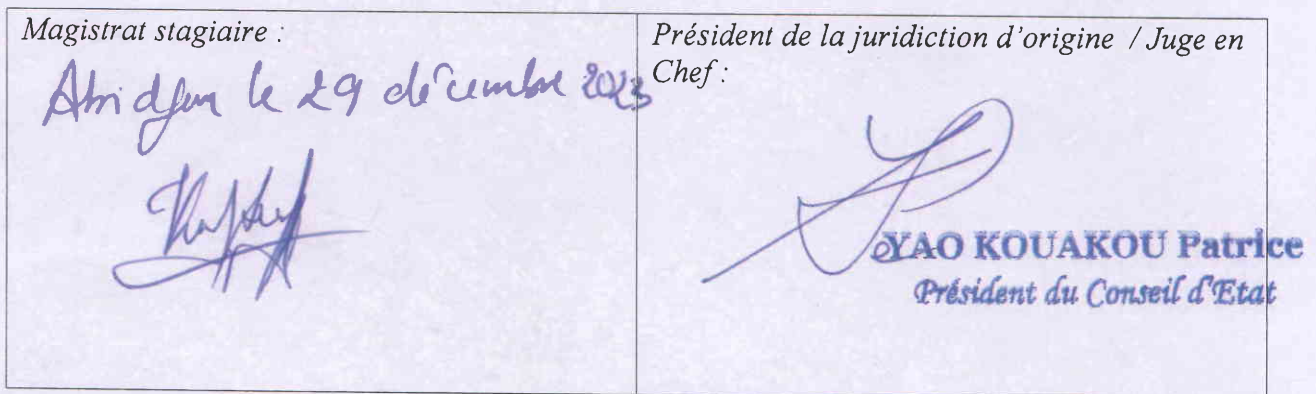 Magistrat stagiaire :
Abidjan le 29 décembre 2023
Président de la juridiction d'origine / Juge en
Chef :
YAO KOUAKOU Patrice
Président du Conseil d'Etat